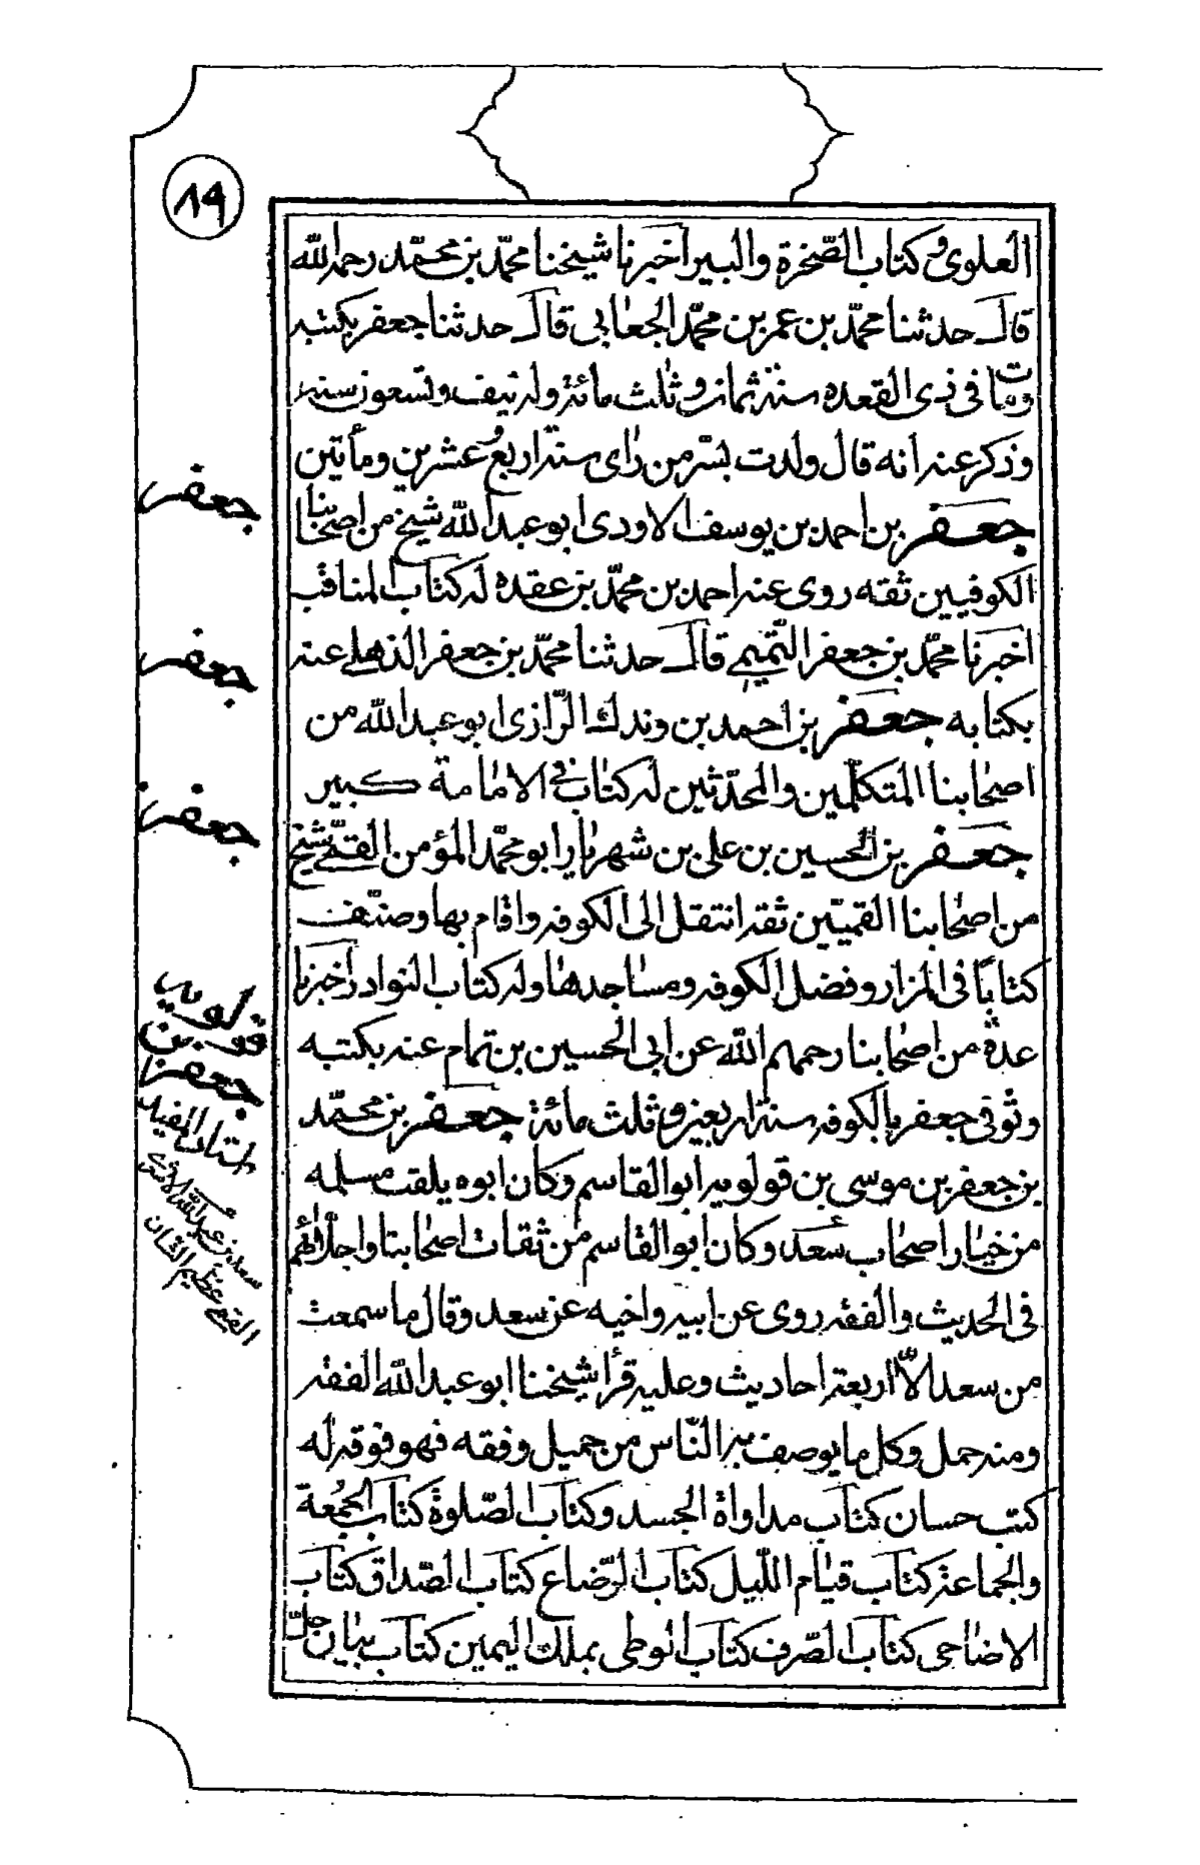 ٨٩
العلوي وكتاب الصّخرة والبير اخبرنا شيخنا محمّد بن محمّد رحمه الله
قال حدثنا محمّد بن عمر بن محمّد الجعابي قال حدثنا جعفر بكتبه
ومات في ذي القعده سنة ثمان وثلث مائة وله نيف وتسعون سنه
وذكر عنه انه قال ولدت بسرّ من رأى سنة اربع وعشرين ومأتين
جعفر بن احمد بن يوسف الاودي ابو عبد الله شيخ من اصحابنا
الكوفيين ثقه روى عنه احمد بن محمّد بن عقده له كتاب المناقب
اخبرنا محمّد بن جعفر التّميمي قال حدثنا محمّد بن جعفر الذهلي عنه
بكتابه جعفر بن احمد بن وندك الرّازي ابو عبد الله من
اصحابنا المتكلّمين والمحدّثين له كتاب في الامامة كبير
جعفر بن الحسين بن علي بن شهريار ابو محمّد المؤمن القمّي شيخ
من اصحابنا القميّين ثقه انتقل الى الكوفه واقام بها وصنّف
كتابًا في المزار وفضل الكوفه ومساجدها وله كتاب النوادر اخبرنا
عدة من اصحابنا رحمهم الله عن ابي الحسين بن تمام عنه بكتبه
وتوفي جعفر بالكوفه سنة اربعين وثلث مائة جعفر بن محمّد
بن جعفر بن موسى بن قولويه ابو القاسم وكان ابوه يلقب مسلمه
من خيار اصحاب سعد وكان ابو القاسم من ثقات اصحابنا واجلّائهم
في الحديث والفقه روى عن ابيه واخيه عن سعد وقال ما سمعت
من سعد الّا اربعة احاديث وعليه قرأ شيخنا ابو عبد الله الفقه
ومنه حمل وكل ما يوصف به النّاس من جميل وفقه فهو فوقه له
كتب حسان كتاب مداواة الجسد وكتاب الصّلوة كتاب الجمعة
والجماعة كتاب قيام اللّيل كتاب الرّضاع كتاب الصّداق كتاب
الاضاحي كتاب الصّرف كتاب الوطي بملك اليمين كتاب بيان حلّ
جعفر
جعفر
جعفر
جعفر بن
قولويه
استاد المفيد
سعد بن عبد الله الاشعري
القمي عظيم الشان